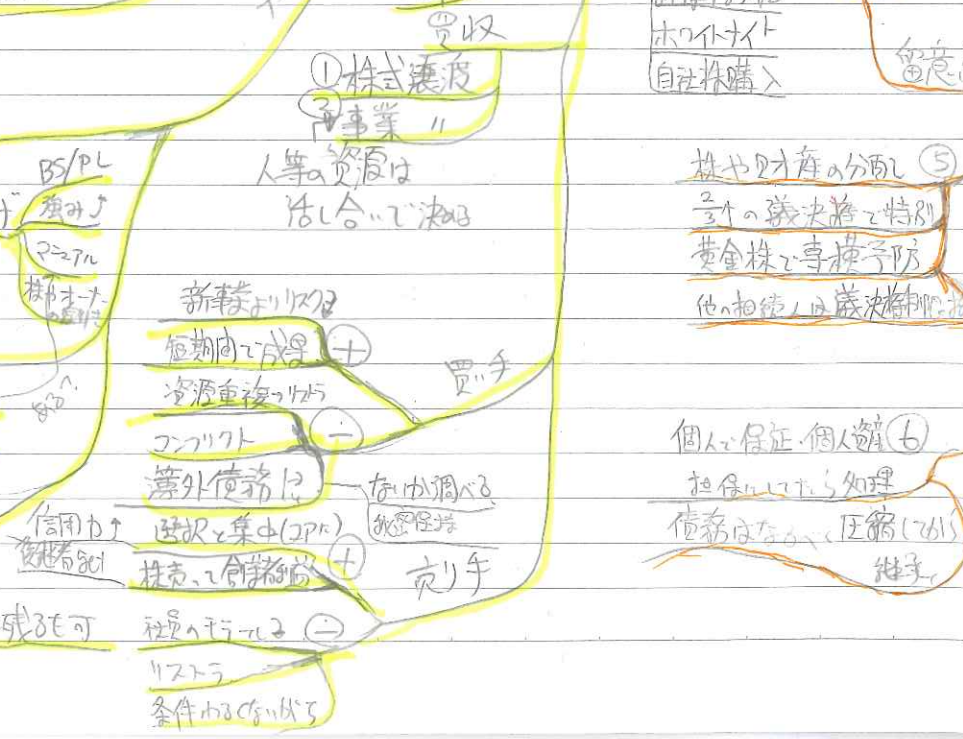 買収
①株式譲渡
②事業 〃
人等の資源は
話し合いで決める
BS/PL
強み↑
マニュアル
新事業よりリスク
短期間で成果
＋
資源重複のリストラ
コンフリクト
簿外債務
－
買い手
ないか調べる
秘密保持
信用力↑
選択と集中(コアに)
株売って創業者
＋
売り手
残るも可
社員のモラール
－
リストラ
条件わるくない
ホワイトナイト
自社株購入
留意
株や財産の分配 ⑤
2/3の議決権で特別
黄金株で専横予防
他の相続人は議決権制限
個人で保証・個人資産 ⑥
担保にしてたら処理
債務はなるべく圧縮してから
継承